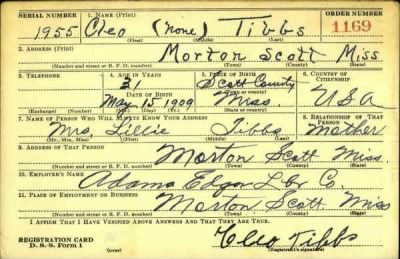 SERIAL NUMBER 1. NAME (Print) ORDER NUMBER
1955 Cleo (none) Tibbs 1169
(First) (Middle) (Last)
2. ADDRESS (Print)
Morton Scott Miss
(Number and street or R. F. D. number) (Town) (County) (State)
3. TELEPHONE 4. AGE IN YEARS 5. PLACE OF BIRTH 6. COUNTRY OF CITIZENSHIP
Scott County
DATE OF BIRTH
May 15 1909 Miss. USA
(Exchange) (Number) (Mo.) (Day) (Yr.) (State or country)
7. NAME OF PERSON WHO WILL ALWAYS KNOW YOUR ADDRESS 8. RELATIONSHIP OF THAT PERSON
Mrs. Lillie Tibbs Mother
(Mr., Mrs., Miss) (First) (Middle) (Last)
9. ADDRESS OF THAT PERSON
Morton Scott Miss.
(Number and street or R. F. D. number) (Town) (County) (State)
10. EMPLOYER'S NAME
Adams Edgar Lbr Co.
11. PLACE OF EMPLOYMENT OR BUSINESS
Morton Scott Miss
(Number and street or R. F. D. number) (Town) (County) (State)
I AFFIRM THAT I HAVE VERIFIED ABOVE ANSWERS AND THAT THEY ARE TRUE.
REGISTRATION CARD
D. S. S. Form 1 Cleo Tibbs
(Registrant's signature)